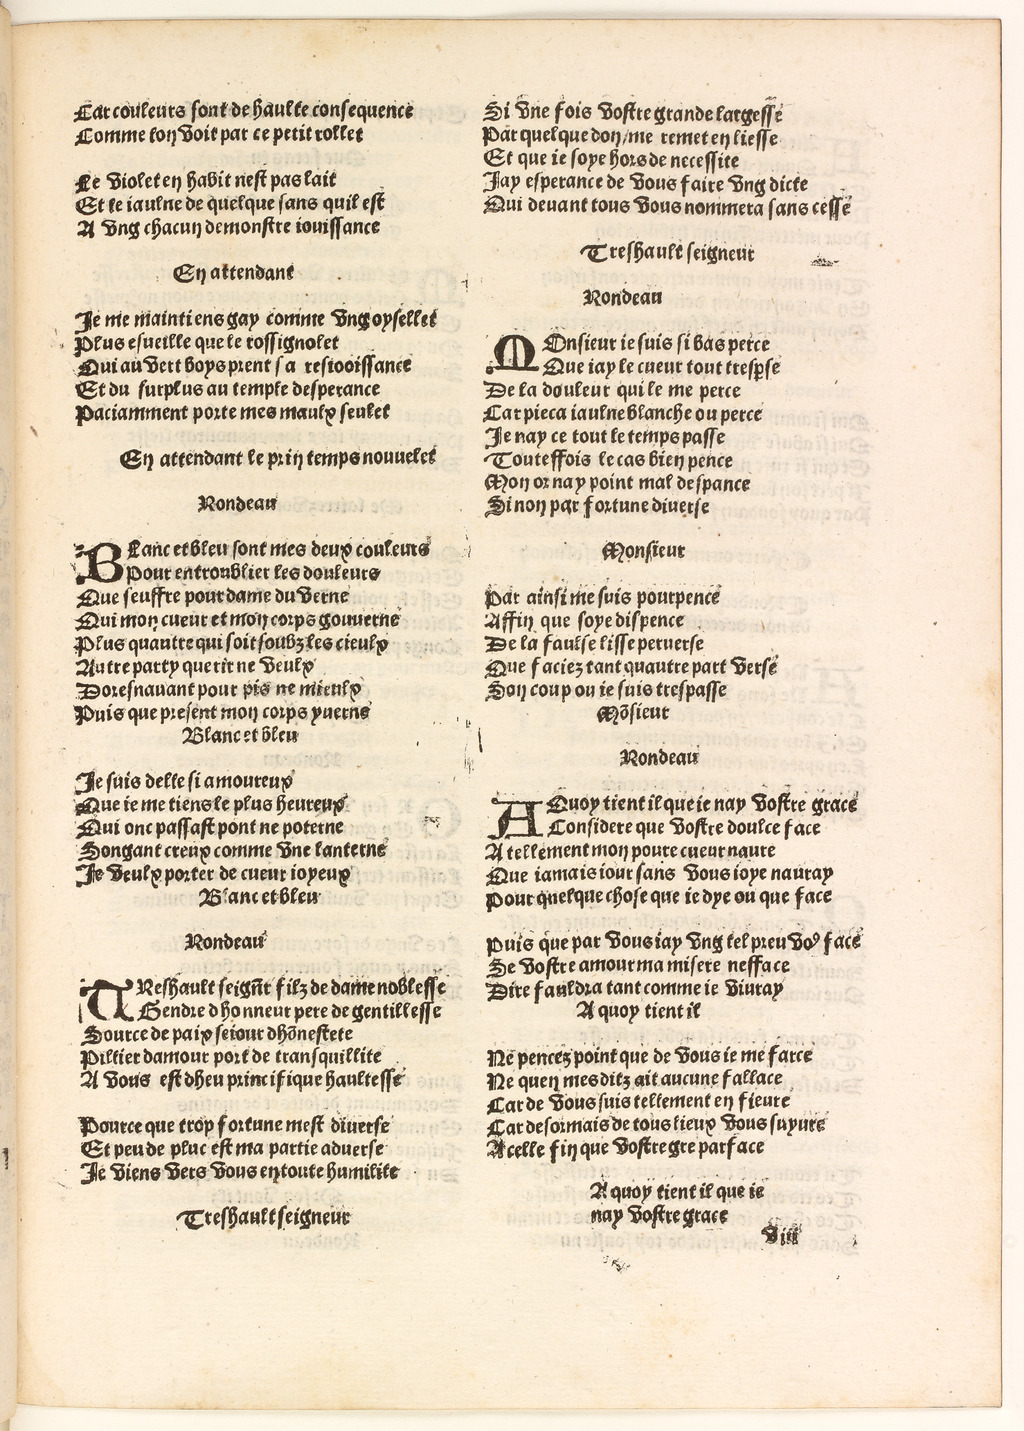 Car couleurs sont de haulte consequence
Comme lon voit par ce petit rollet
Le violet en habit nest pas lait
Et le iaulne de quelque sans quil est
A vng chacun demonstre iouissance
En attendant
Je me maintiens gay comme vng oysellet
Plus esueille que le rossignolet
Qui au vert boys prent sa resioissance
Et du surplus au temple desperance
Paciamment porte mes maulx seulet
En attendant le prin temps nouuelet
Rondeau
Blanc et bleu sont mes deux couleurs
Pour entroublier les douleurs
Que seuffre pour dame du verne
Qui mon cueur et mon corps gouuerne
Plus quautre qui soit soubz les cieulx
Autre party querir ne veulx
Doresnauant pour pis ne mieulx
Puis que present mon corps yuerne
Blanc et bleu
Je suis delle si amoureux
Que ie me tiens le plus heureux
Qui onc passast pont ne poterne
Songant creux comme vne lanterne
Je veulx porter de cueur ioyeux
Blanc et bleu
Rondeau
TReshault seignr̃ filz de dame noblesse
Gendre dhonneur pere de gentillesse
Source de paix seiour dhõnestete
Pillier damour port de transquillite
A vous est dheu principfique haultesse
Pource que trop fortune mest diuerse
Et peu de pluc est ma partie aduerse
Je viens vers vous en toute humilite
Treshault seigneur
Si vne fois vostre grande largesse
Par quelque don/me remet en liesse
Et que ie soye hors de necessite
Jay esperance de vous faire vng dicte
Qui deuant tous vous nommera sans cesse
Treshault seigneur
Rondeau
MOnsieur ie suis si bas perce
Que iay le cueur tout tresperse
De la douleur qui le me perce
Car pieca iaulne blanche ou perce
Je nay ce tout le temps passe
Touteffois le cas bien pence
Mon or nay point mal despance
Si non par fortune diuerse
Monsieur
Par ainsi me suis pourpence
Affin que soye dispence
De la faulse lisse peruerse
Que faciez tant quautre part verse
Son coup ou ie suis trespasse
Mõsieur
Rondeau
A Quoy tient il que ie nay vostre grace
Considere que vostre doulce face
A tellement mon poure cueur naure
Que iamais iour sans vous ioye nauray
Pour quelque chose que ie dye ou que face
Puis que par vous iay vng tel preu voꝰ face
Se vostre amour ma misere nefface
Dire fauldra tant comme ie viuray
A quoy tient il
Ne pencez point que de vous ie me farce
Ne quen mes ditz ait aucune fallace
Car de vous suis tellement en fieure
Car desormais de tous lieux vous suyure
A celle fin que vostre gre parface
A quoy tient il que ie
nay vostre grace
viii